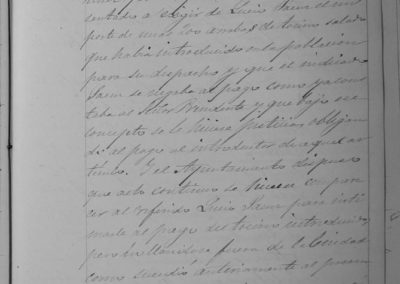 sentado a exigir de Luis Saem el im
porte de unos los ambos de tocino salado
que habia introducido en la poblacion
para su despacho y que el indicado
Saem se negaba al pago como ya cons
taba al Señor Presidente y que bajo ese
concepto se le hiciese justicia obligan
do al pago al introductor de aquel ar
ticulo. Y el Ayuntamiento dispuso
que acto continuo se hiciera compare
cer al referido Luis Saem para inti
marle al pago del tocino introducido,
pero hallandose fuera de la Ciudad
como sucedió anteriormente al presen